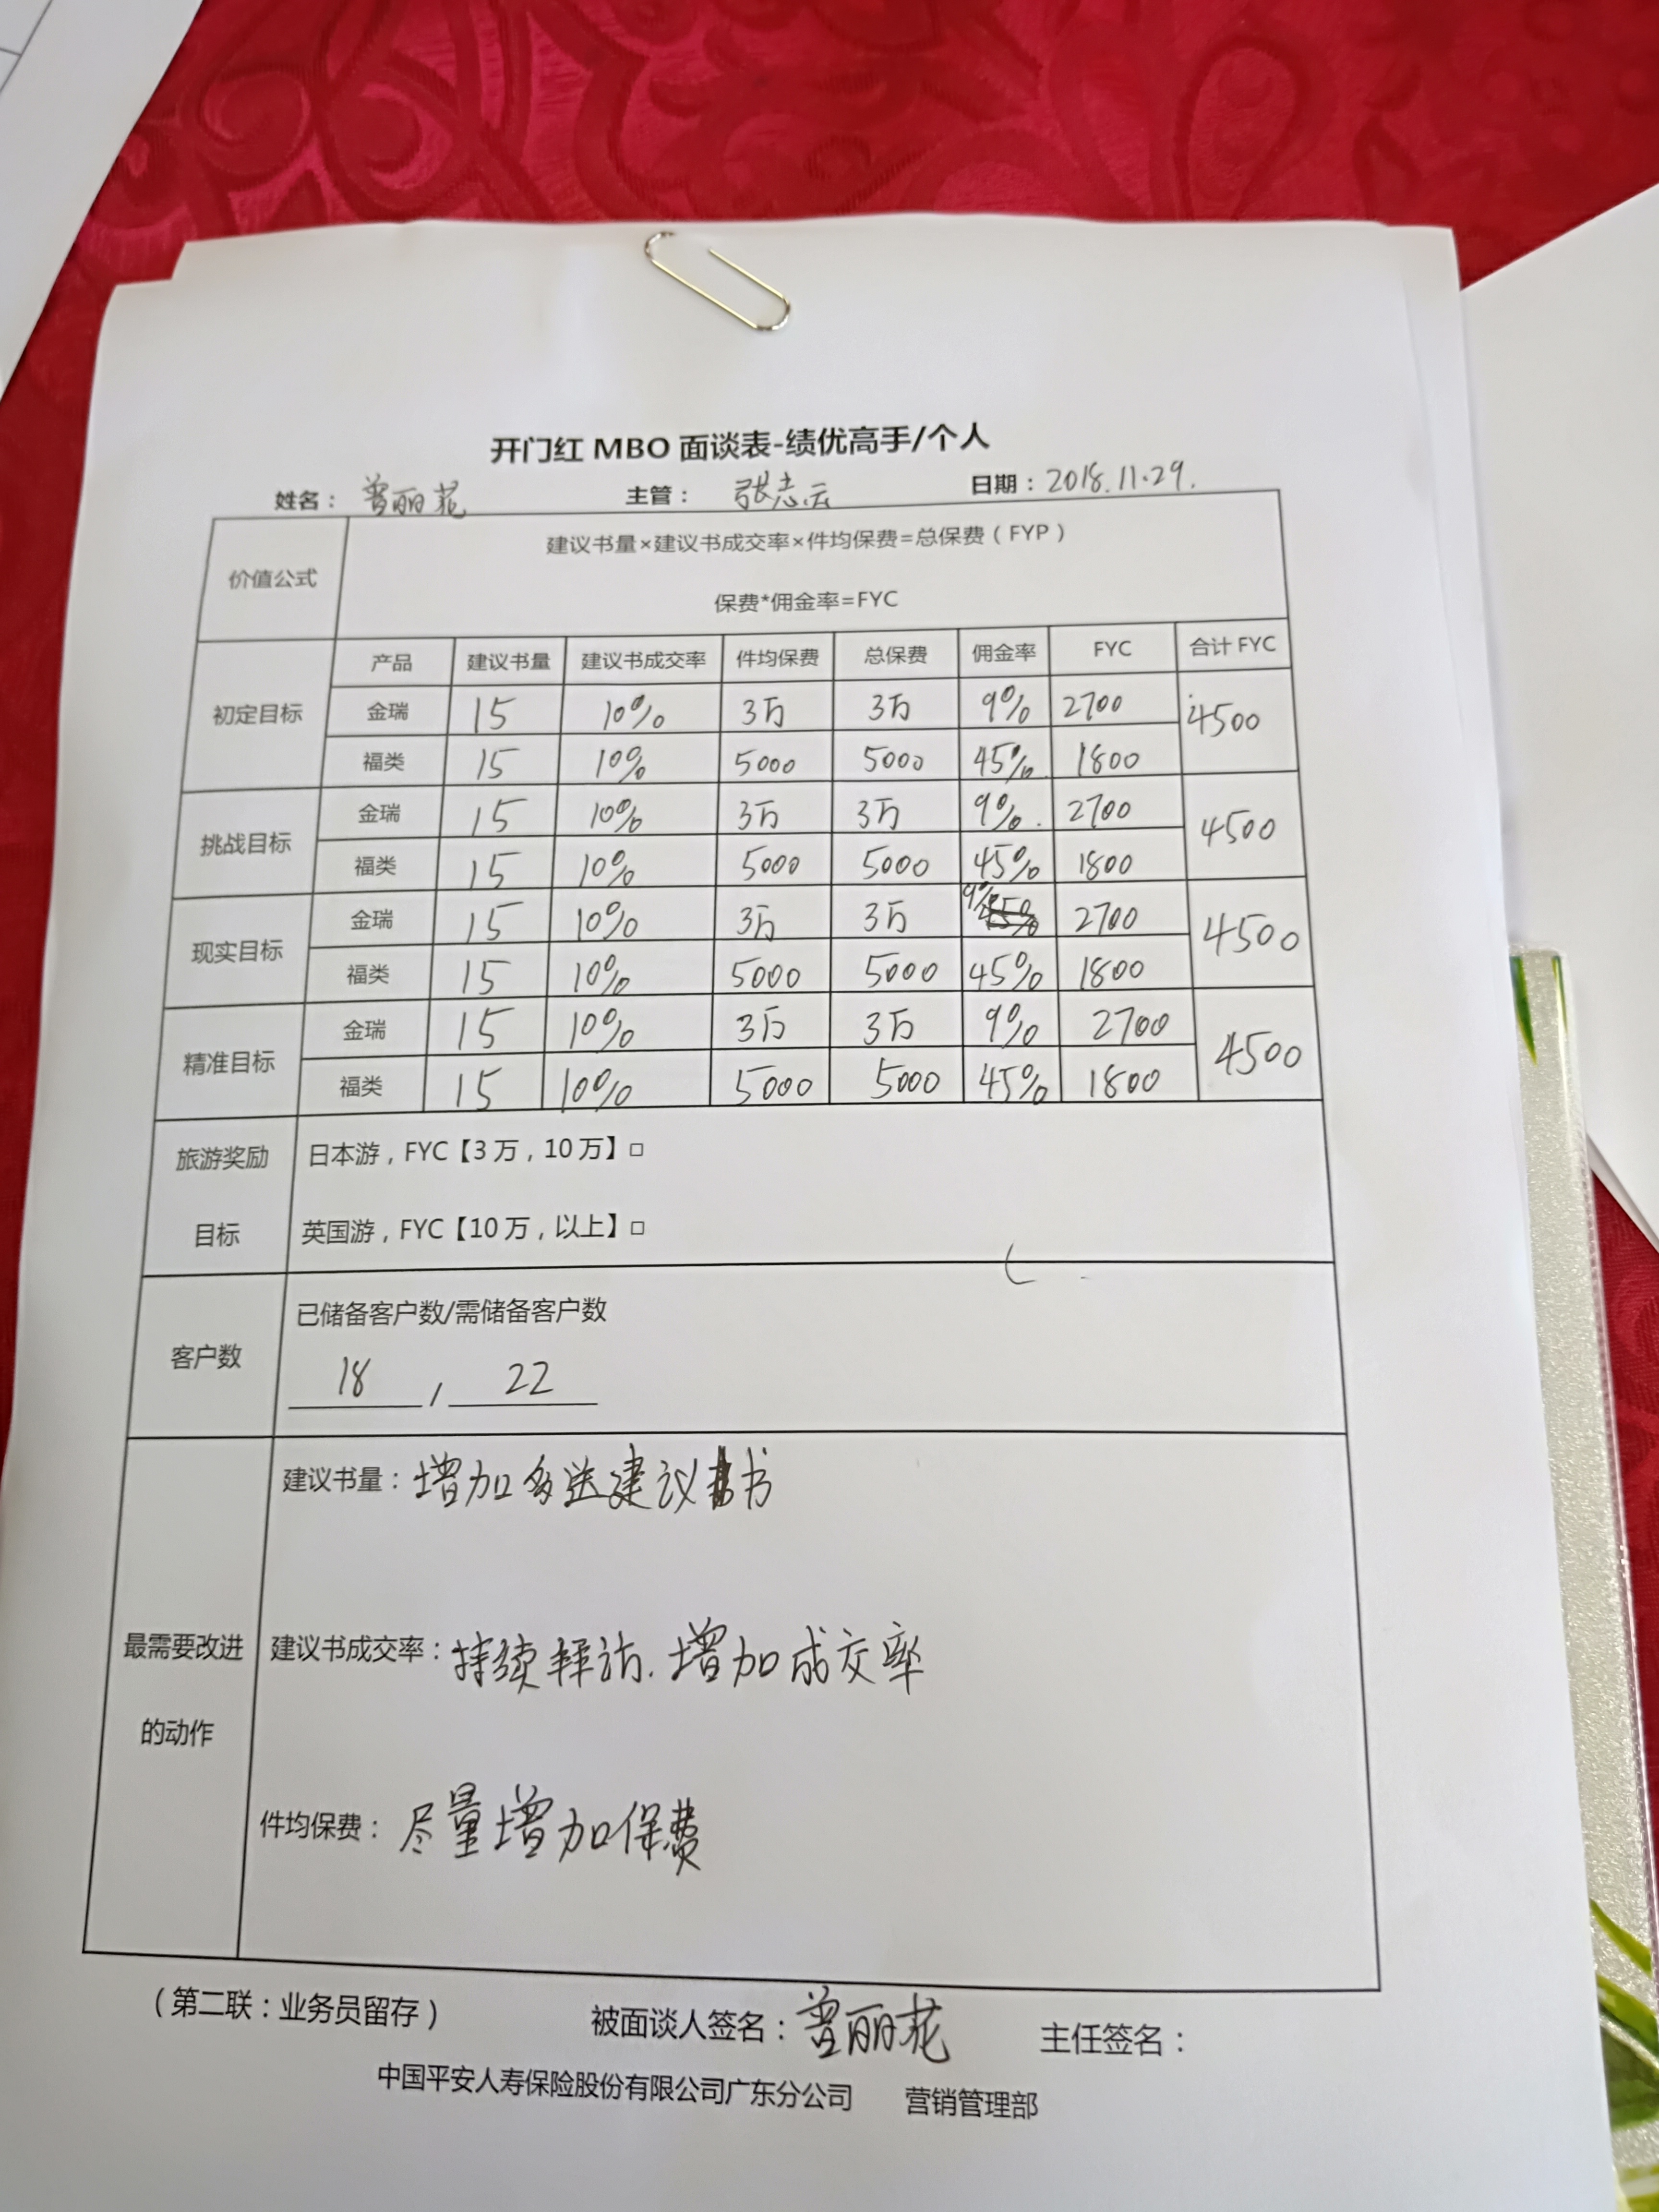 开门红 MBO 面谈表-绩优高手/个人
姓名：曾丽花 主管：张志云 日期：2018.11.29.
价值公式 建议书量×建议书成交率×件均保费=总保费（FYP）
保费*佣金率=FYC
产品 建议书量 建议书成交率 件均保费 总保费 佣金率 FYC 合计 FYC
初定目标 金瑞 15 10% 3万 3万 9% 2700 4500
福类 15 10% 5000 5000 45% 1800
挑战目标 金瑞 15 10% 3万 3万 9% 2700 4500
福类 15 10% 5000 5000 45% 1800
现实目标 金瑞 15 10% 3万 3万 9% 2700 4500
福类 15 10% 5000 5000 45% 1800
精准目标 金瑞 15 10% 3万 3万 9% 2700 4500
福类 15 10% 5000 5000 45% 1800
旅游奖励 日本游，FYC【3 万，10 万】□
目标 英国游，FYC【10 万，以上】□
已储备客户数/需储备客户数
客户数 18 / 22
建议书量：增加多送建议书
最需要改进 建议书成交率：持续拜访.增加成交率
的动作
件均保费：尽量增加保费
（第二联：业务员留存） 被面谈人签名：曾丽花 主任签名：
中国平安人寿保险股份有限公司广东分公司 营销管理部